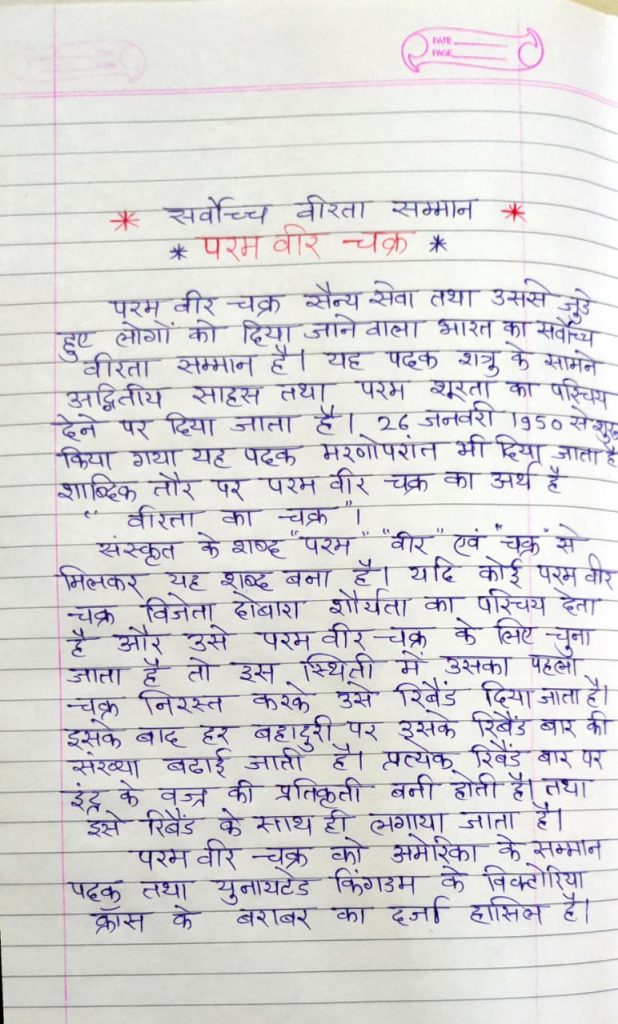 DATE
PAGE
* सर्वोच्च वीरता सम्मान *
* परम वीर चक्र *
परम वीर चक्र सैन्य सेवा तथा उससे जुडे
हुए लोगों को दिया जाने वाला भारत का सर्वोच्च
वीरता सम्मान है। यह पदक शत्रु के सामने
अद्वितीय साहस तथा परम शूरता का परिचय
देने पर दिया जाता है। 26 जनवरी 1950 से शुरू
किया गया यह पदक मरणोपरांत भी दिया जाता है
शाब्दिक तौर पर परम वीर चक्र का अर्थ है
"वीरता का चक्र"।
संस्कृत के शब्द "परम" "वीर" एवं "चक्र" से
मिलकर यह शब्द बना है। यदि कोई परम वीर
चक्र विजेता दोबारा शौर्यता का परिचय देता
है और उसे परम वीर चक्र के लिए चुना
जाता है तो इस स्थिती में उसका पहला
चक्र निरस्त करके उसे रिबैंड दिया जाता है।
इसके बाद हर बहादुरी पर उसके रिबैंड बार की
संख्या बढाई जाती है। प्रत्येक रिबैंड बार पर
इंद्र के वज्र की प्रतिकृती बनी होती है। तथा
इसे रिबैंड के साथ ही लगाया जाता है।
परम वीर चक्र को अमेरिका के सम्मान
पदक तथा युनायटेड किंगडम के विक्टोरिया
क्रॉस के बराबर का दर्जा हासिल है।